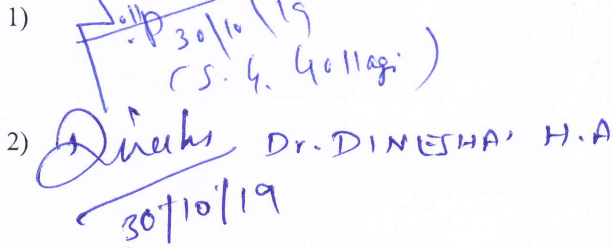 1)
30/10/19
(S. G. Gollagi)
2) Dr. DINESHA' H.A
30/10/19